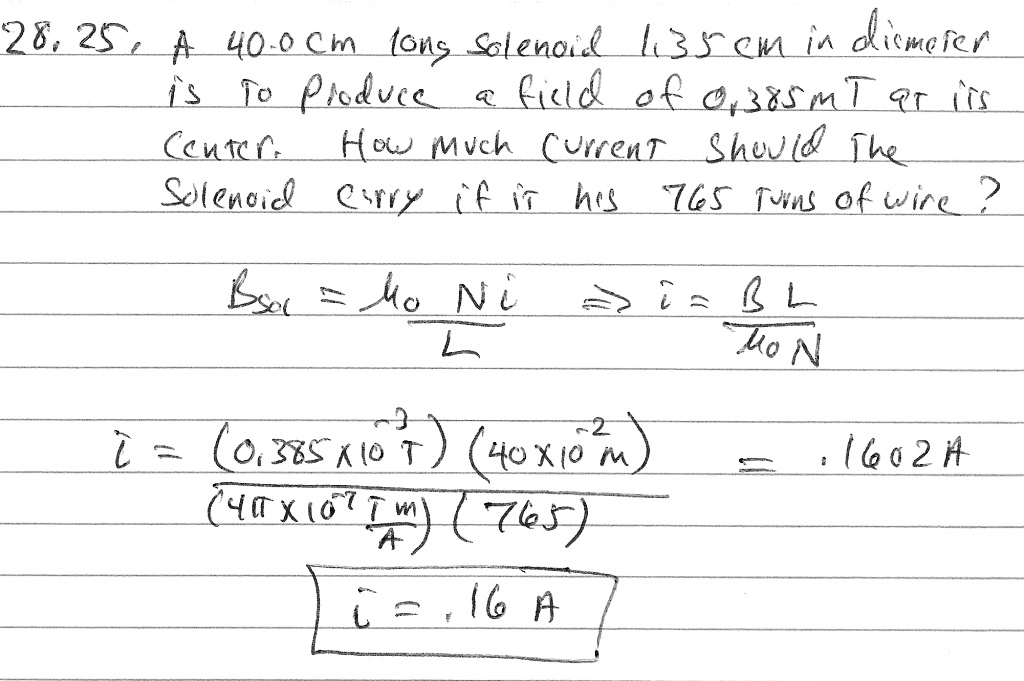 28.25. A 40.0 cm long solenoid 1.35 cm in diameter
is to produce a field of 0.385 mT at its
center. How much current should the
solenoid carry if it has 765 turns of wire?
B_sol = μ₀ N i / L ⇒ i = B L / μ₀ N
i = (0.385 x 10⁻³ T) (40 x 10⁻² m) / (4π x 10⁻⁷ T m / A) (765) = .1602 A
i = .16 A